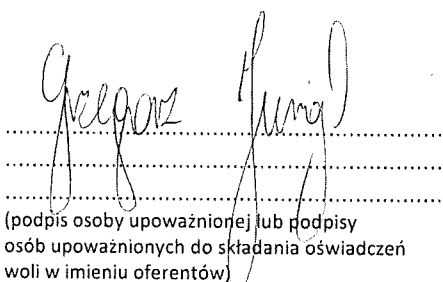 Grzegorz
(podpis osoby upoważnionej lub podpisy
osób upoważnionych do składania oświadczeń
woli w imieniu oferentów)